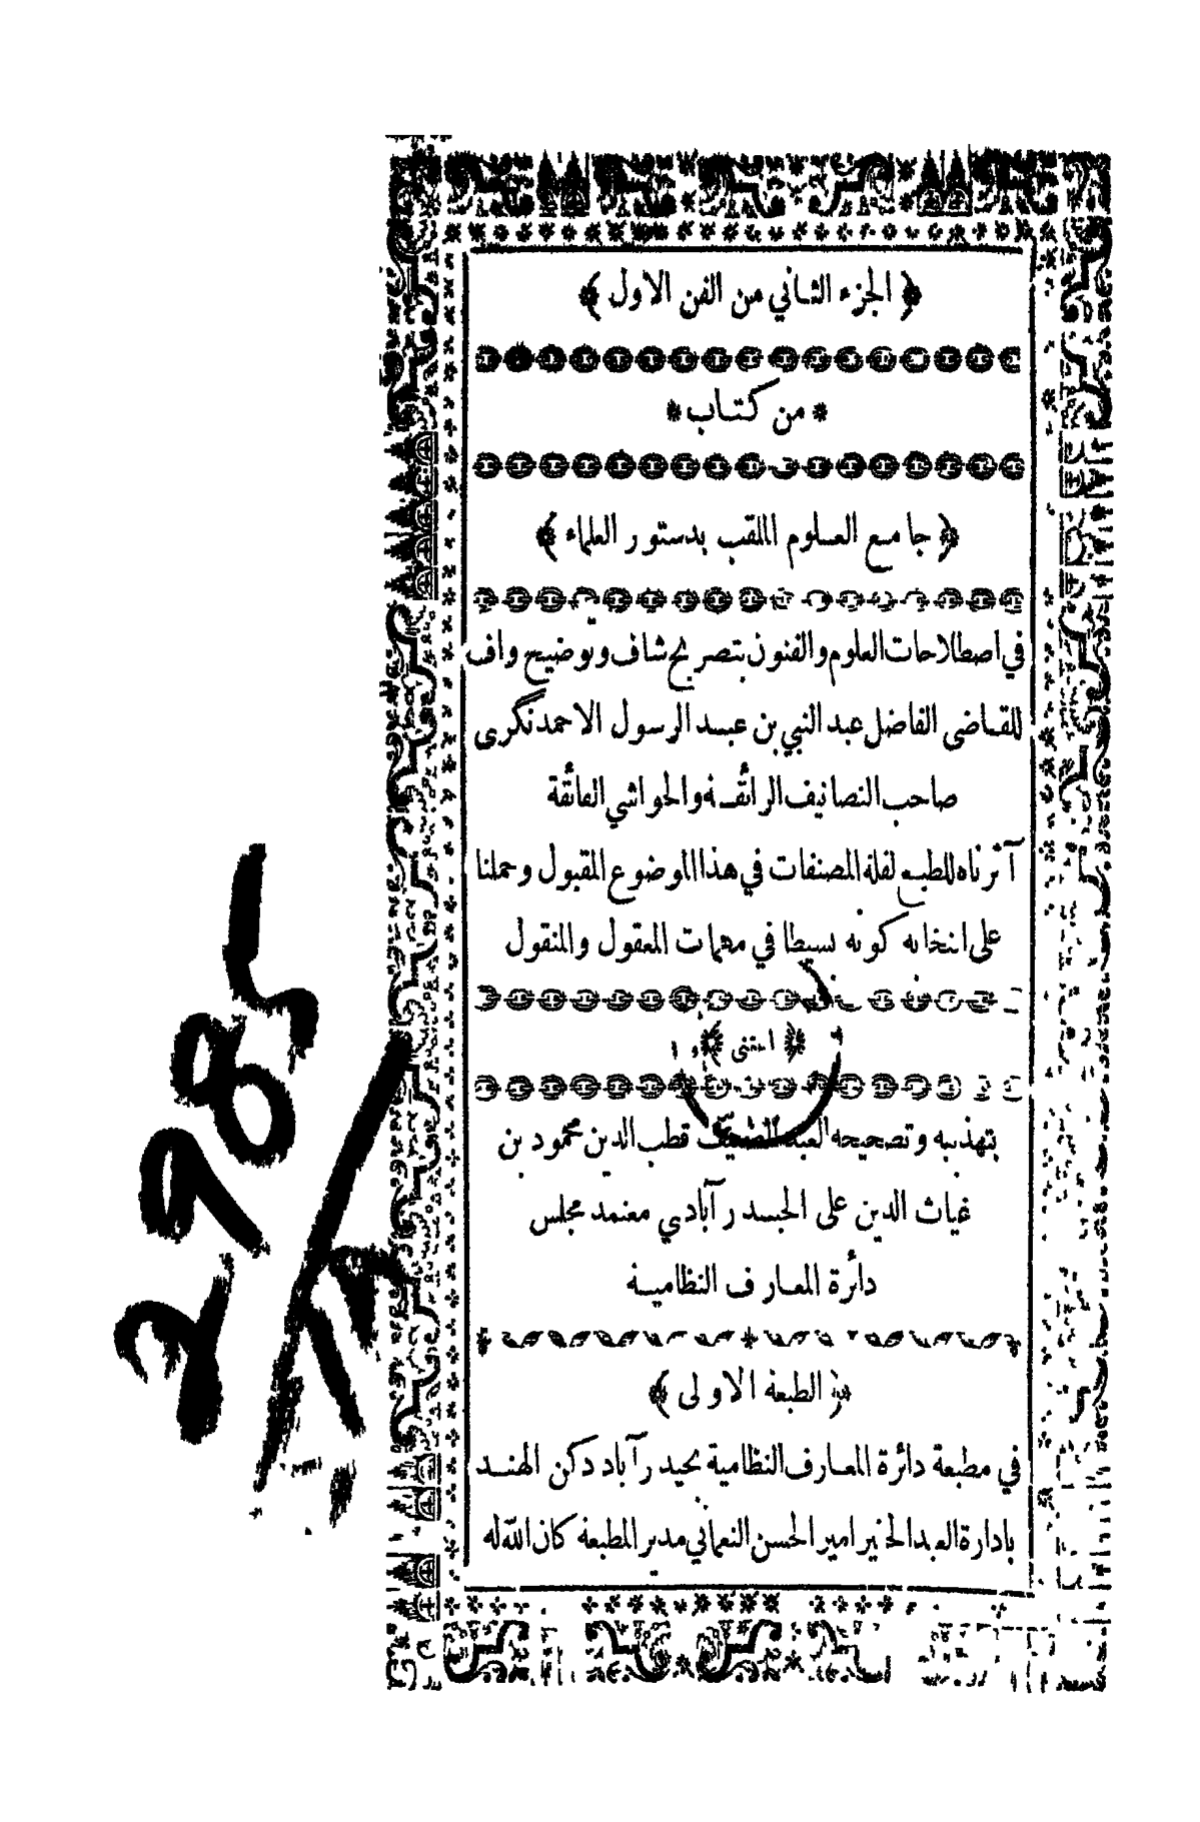 ﴿ الجزء الثاني من الفن الاول ﴾
* من كتاب *
﴿ جامع العلوم الملقب بدستور العلماء ﴾
في اصطلاحات العلوم والفنون بتصريح شاف وتوضيح واف
للقاضى الفاضل عبد النبي بن عبد الرسول الاحمد نگرى
صاحب التصانيف الرائقة والحواشي الفائقة
آثرناه للطبع لقلة المصنفات في هذا الموضوع المقبول وحملنا
على انتخابه كونه بسيطا في مهمات المعقول والمنقول
﴿ اعتنى ﴾
بتهذيبه وتصحيحه العبد الضعيف قطب الدين محمود بن
غياث الدين على الحيدرآبادي معتمد مجلس
دائرة المعارف النظامية
﴿ الطبعة الاولى ﴾
في مطبعة دائرة المعارف النظامية بحيدرآباد دكن الهند
بادارة العبد امير الحسن النعماني مدير المطبعة كان الله له
2985